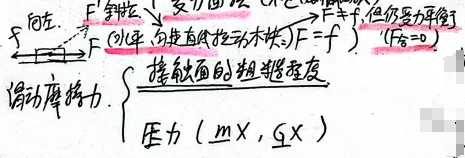 F'斜拉
f 向左. F (水平匀速直线拉动木块:) F=f) F≠f, 但仍受力平衡
(F合=0)
滑动摩擦力. { 接触面的粗糙程度
压力 (mX, GX)